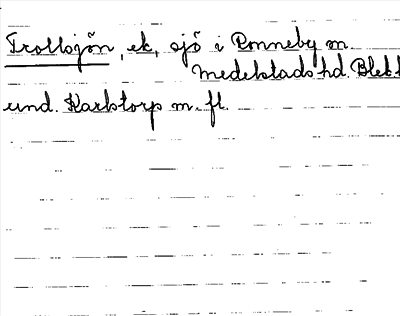 Trollsjön, ek, sjö i Ronneby m.
Medelstads hd. Blek.
und. Karlstorp m. fl.